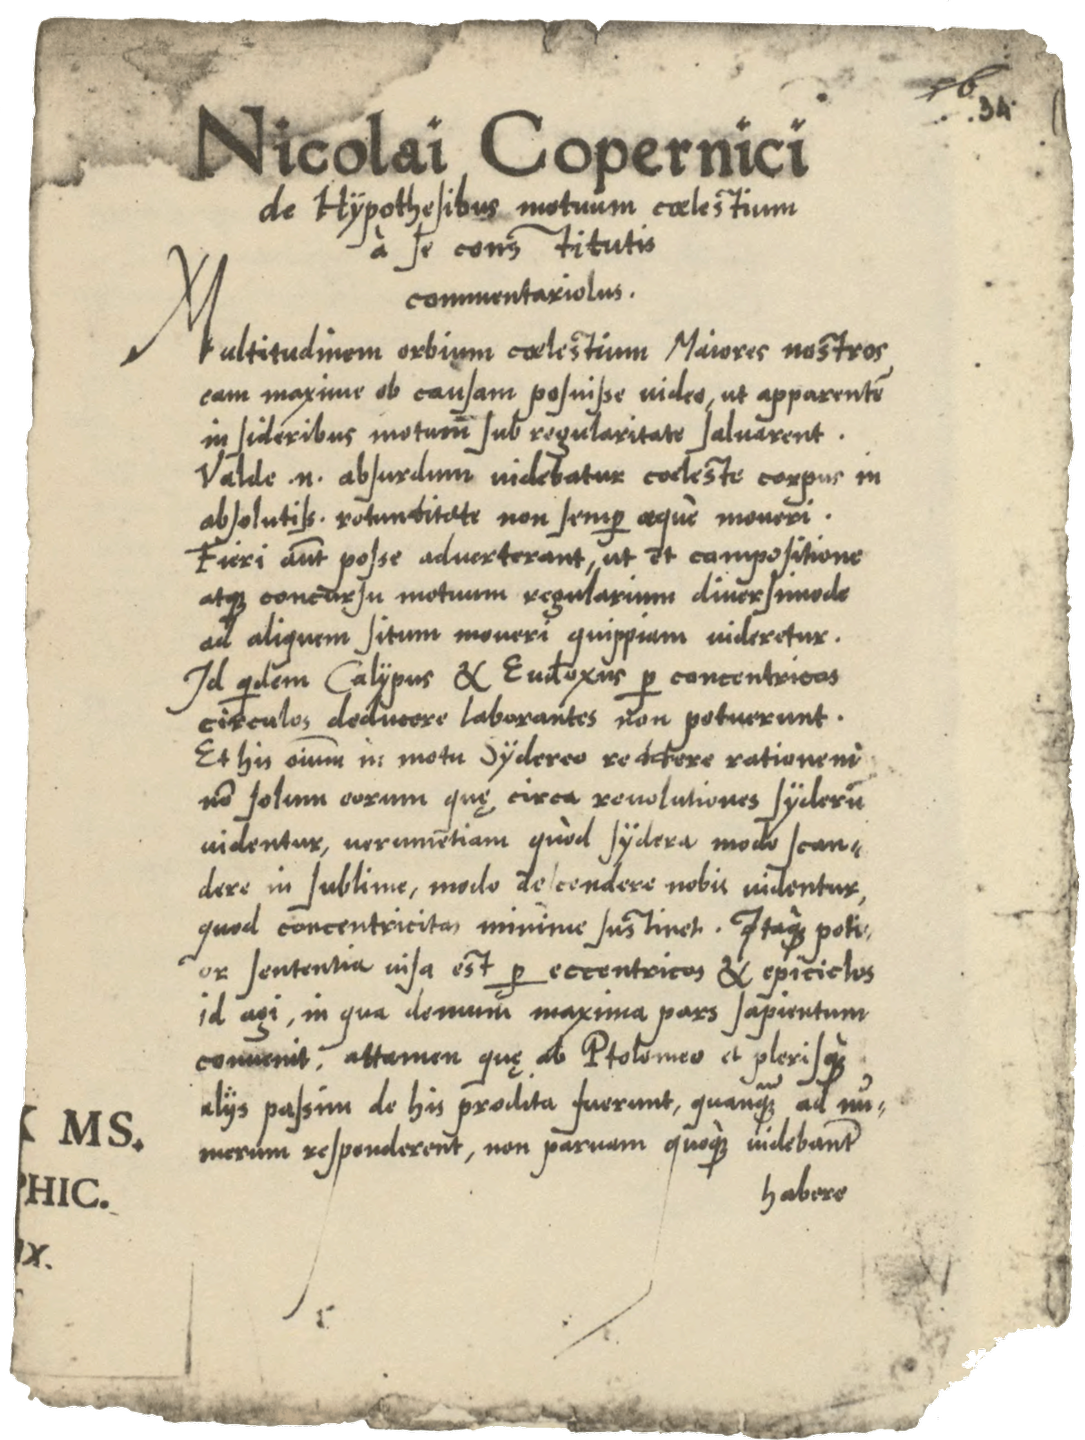 34
Nicolai Copernici
de Hÿpothesibus motuum cœlestium
à se constitutis
commentariolus.
Multitudinem orbium cœlestium Maiores nostros
eam maxime ob causam posuisse uideo, ut apparentē
in sideribus motum sub regularitate saluarent.
Valde .n. absurdum uidebatur cœleste corpus in
absolutiss. rotunditate non semꝑ æque moueri.
Fieri aūt posse aduerterant, ut et compositione
atqꝫ concursu motuum regularium diuersimode
ad aliquem situm moueri quippiam uideretur.
Id qdem Calÿpus & Eudoxus ꝑ concentricos
circulos deducere laborantes non potuerunt.
Et his oīum in motu sÿdereo reddere rationem
nō solum eorum quę circa reuolutiones sÿderū
uidentur, uerumetiam quòd sÿdera modo scan„
dere in sublime, modo descendere nobis uidentur,
quod concentricitas minime sustinet. Itaqꝫ poti„
or sententia uisa est ꝑ eccentricos & epiciclos
id agi, in qua demum maxima pars sapientum
conuenit, attamen quę ab Ptolomeo et plerisqꝫ
alijs passim de his prodita fuerunt, quanqꝫ ad nu„
merum responderent, non paruam quoqꝫ uidebant
habere
MS.
PHIC.
IX.